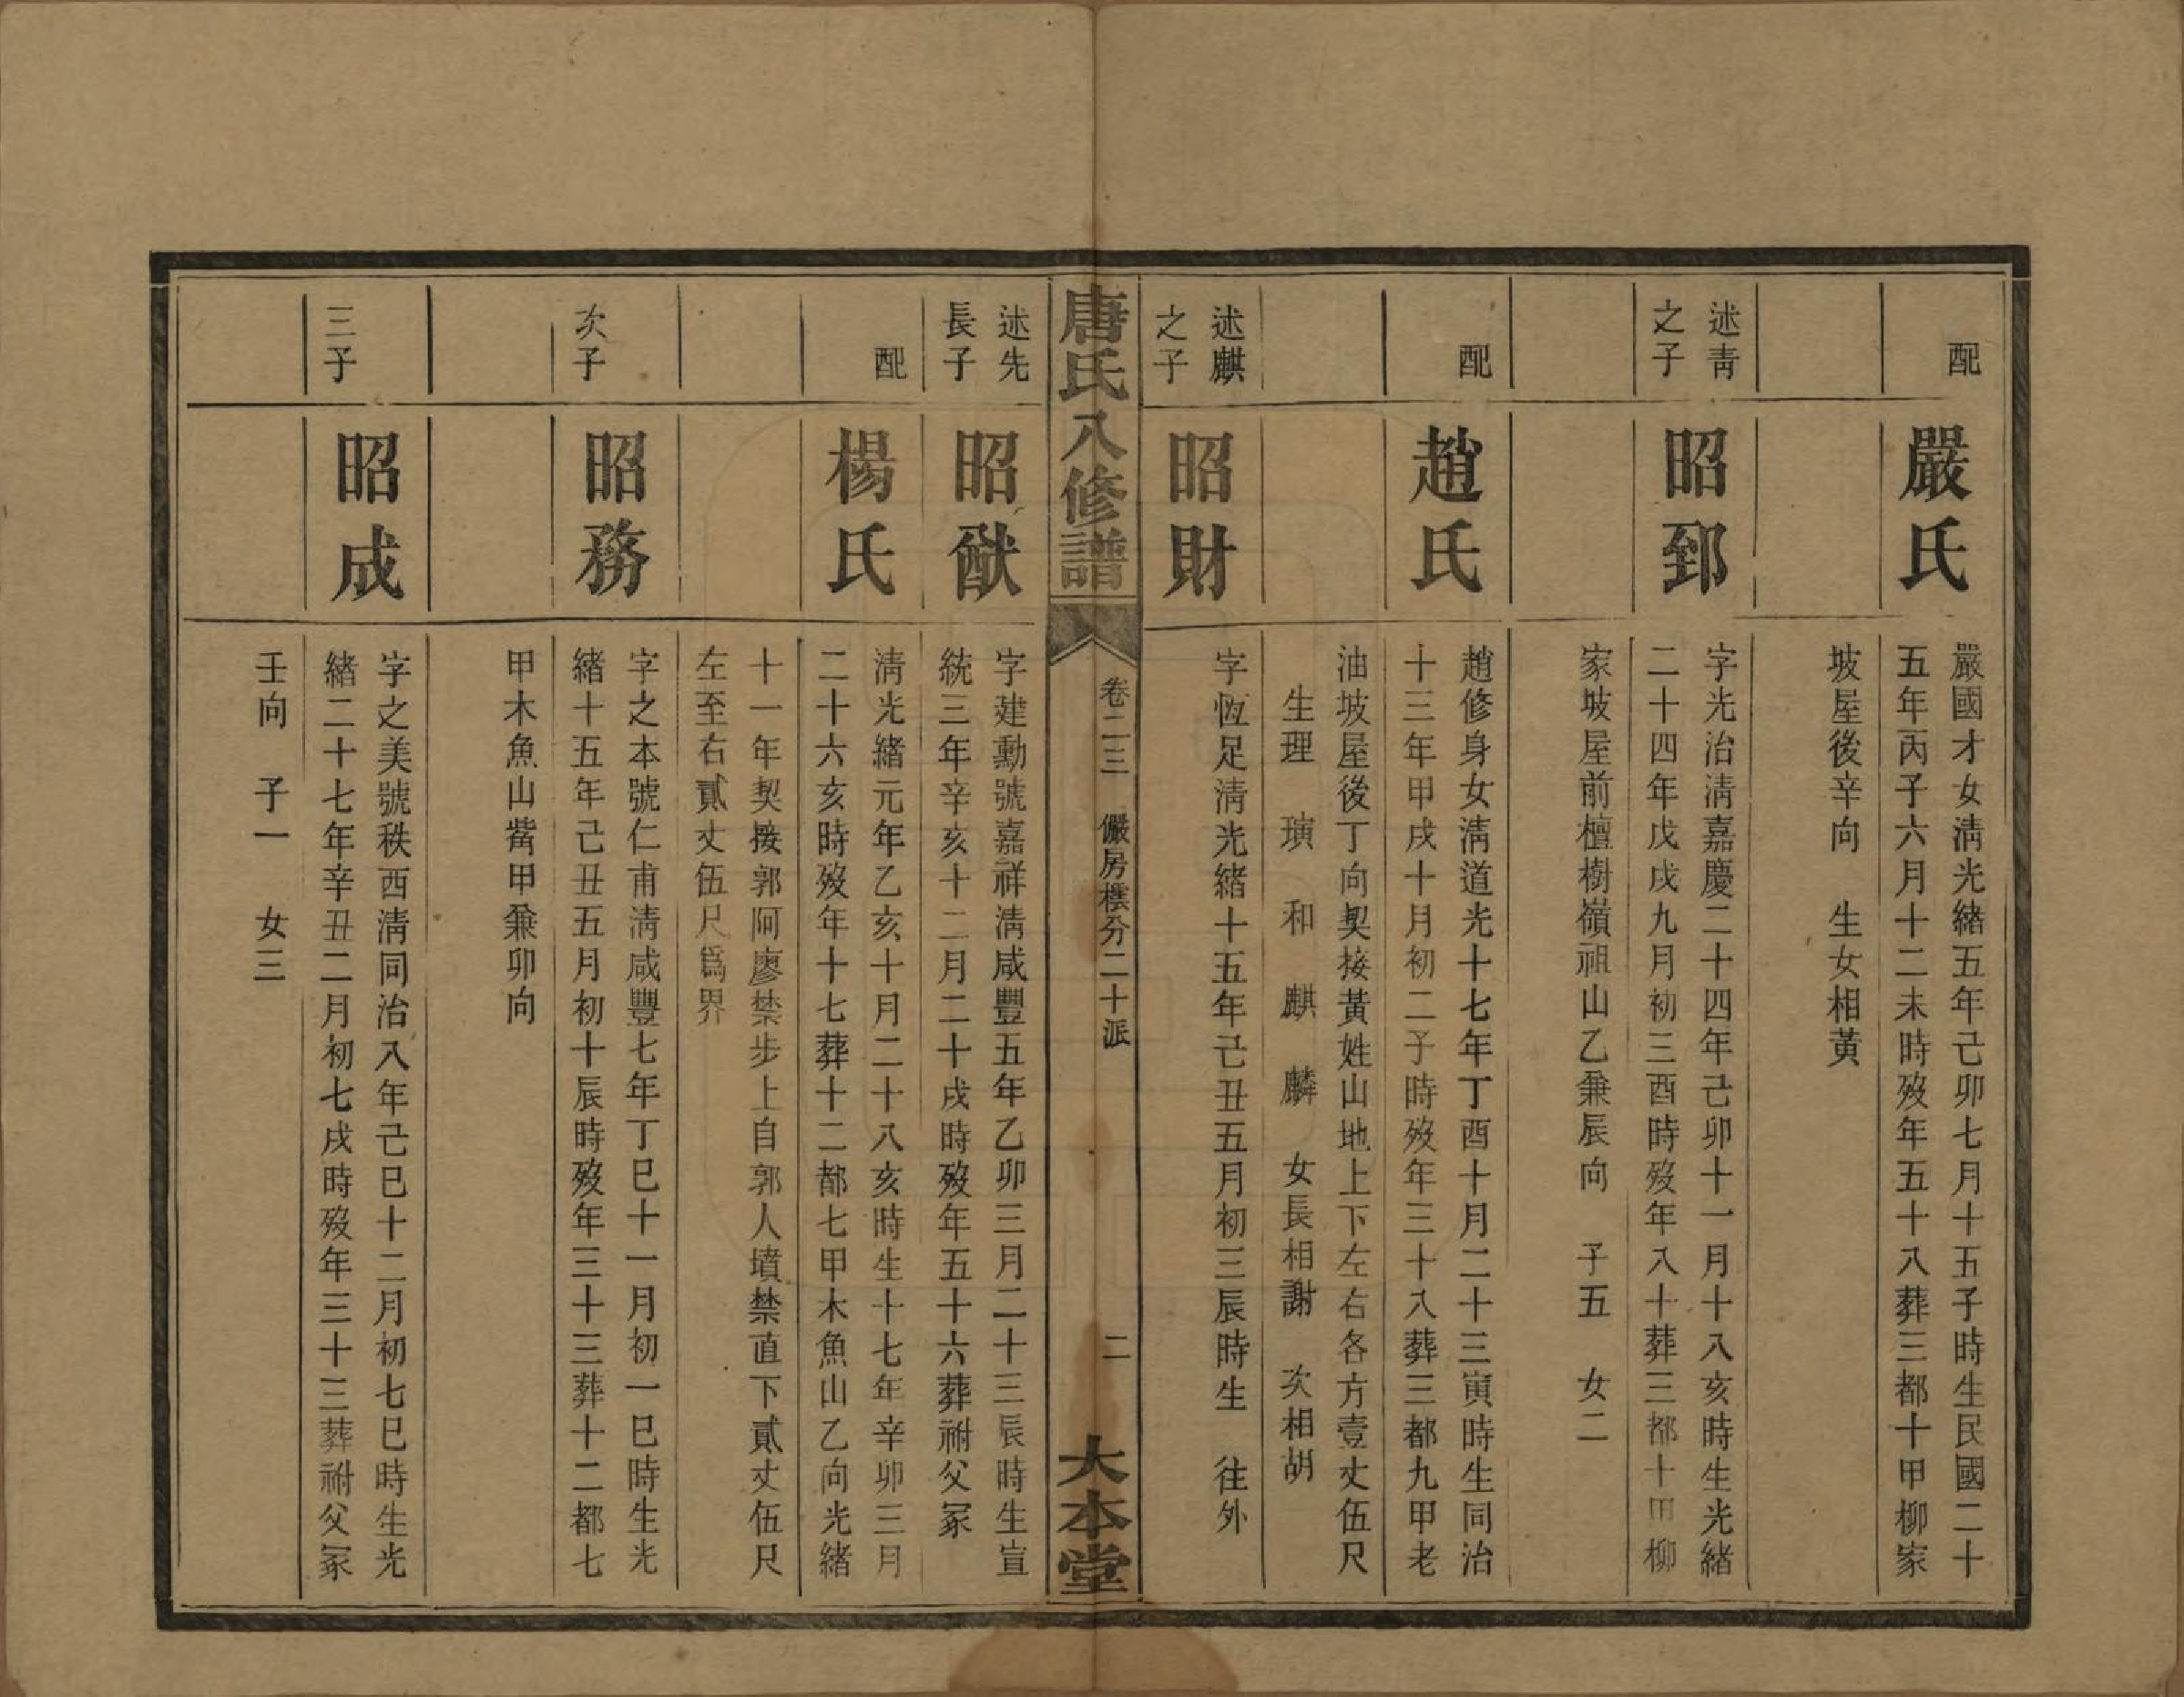 配
嚴氏
嚴國才女淸光緖五年己卯七月十五子時生民國二十
五年丙子六月十二未時歿年五十八葬三都十甲柳家
坡屋後辛向　生女相黃
述靑
之子
昭郅
字光治淸嘉慶二十四年己卯十一月十八亥時生光緖
二十四年戊戌九月初三酉時歿年八十葬三都十甲柳
家坡屋前檀樹嶺祖山乙兼辰向　子五　女二
配
趙氏
趙修身女淸道光十七年丁酉十月二十三寅時生同治
十三年甲戌十月初二子時歿年三十八葬三都九甲老
油坡屋後丁向契接黃姓山地上下左右各方壹丈伍尺
生理　璜　和　麒　麟　女長相謝　次相胡
述麒
之子
昭財
字恆足淸光緖十五年己丑五月初三辰時生　往外
唐氏八修譜
卷二三　儼房橒分二十派　二
大本堂
述先
長子
昭猷
字建勳號嘉祥淸咸豐五年乙卯三月二十三辰時生宣
統三年辛亥十二月二十戌時歿年五十六葬祔父冢
配
楊氏
淸光緖元年乙亥十月二十八亥時生十七年辛卯三月
二十六亥時歿年十七葬十二都七甲木魚山乙向光緖
十一年契接郭阿廖禁步上自郭人墳禁直下貳丈伍尺
左至右貳丈伍尺爲界
次子
昭務
字之本號仁甫淸咸豐七年丁巳十一月初一巳時生光
緖十五年己丑五月初十辰時歿年三十三葬十二都七
甲木魚山觜甲兼卯向
三子
昭成
字之美號秩西淸同治八年己巳十二月初七巳時生光
緖二十七年辛丑二月初七戌時歿年三十三葬祔父冢
壬向　子一　女三